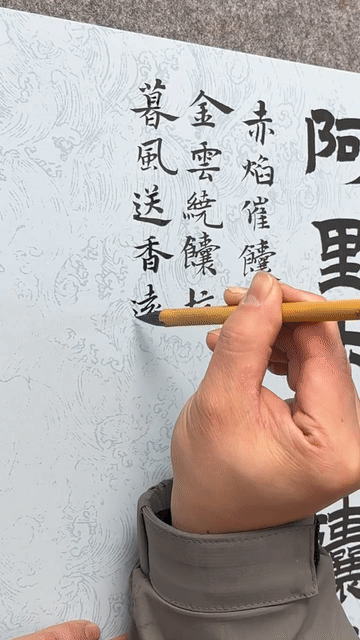 阿野
赤焰催饢
金雲繞饢
暮風送香遠